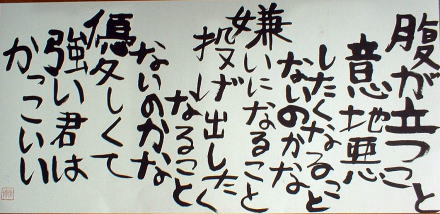 腹が立つこと
意地悪
したくなること
ないのかな
嫌いになること
投げ出したく
なること
ないのかな
優しくて
強い君は
かっこいい